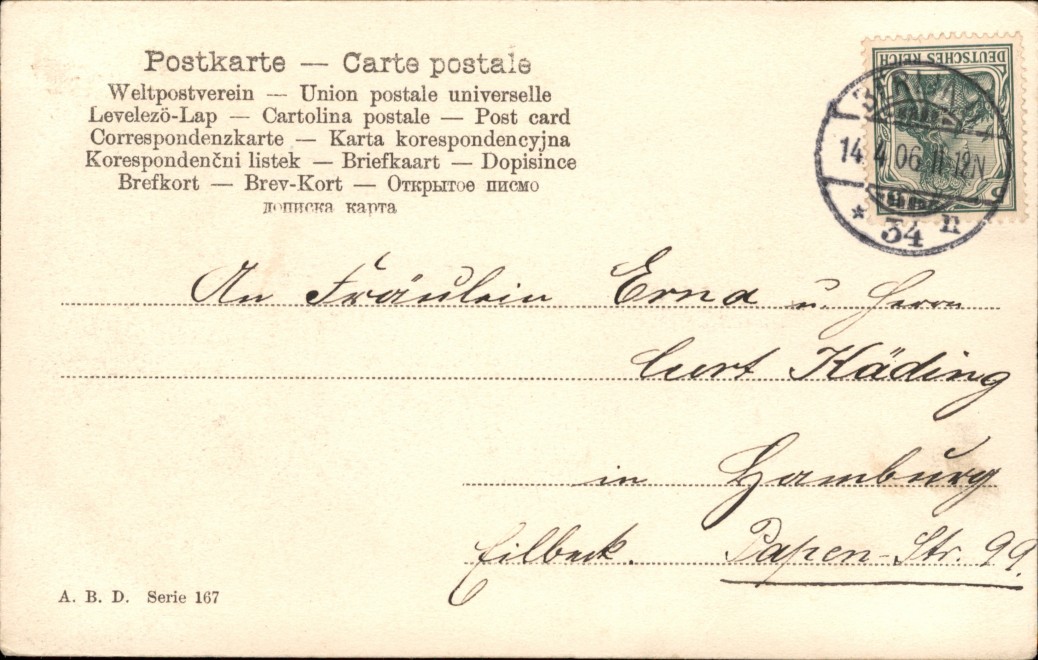 Postkarte — Carte postale
Weltpostverein — Union postale universelle
Levelezö-Lap — Cartolina postale — Post card
Correspondenzkarte — Karta korespondencyjna
Korespondenčni listek — Briefkaart — Dopisince
Brefkort — Brev-Kort — Открытое писмо
дописка карта
DEUTSCHES REICH
BERLIN
14.4.06.11-12N
* 34 n
An Fräulein Erna u. Herrn
Curt Käding
in Hamburg
Eilbeck. Papen-Str. 99.
A. B. D. Serie 167